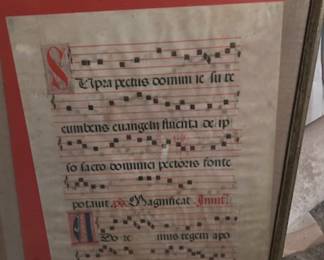 Supra pectus domini ie su re
cumbens euangelii fluenta de ip
so sacro dominici pectoris fonte
potauit. ps. Magnificat Inuit.
Ado re mus regem apo